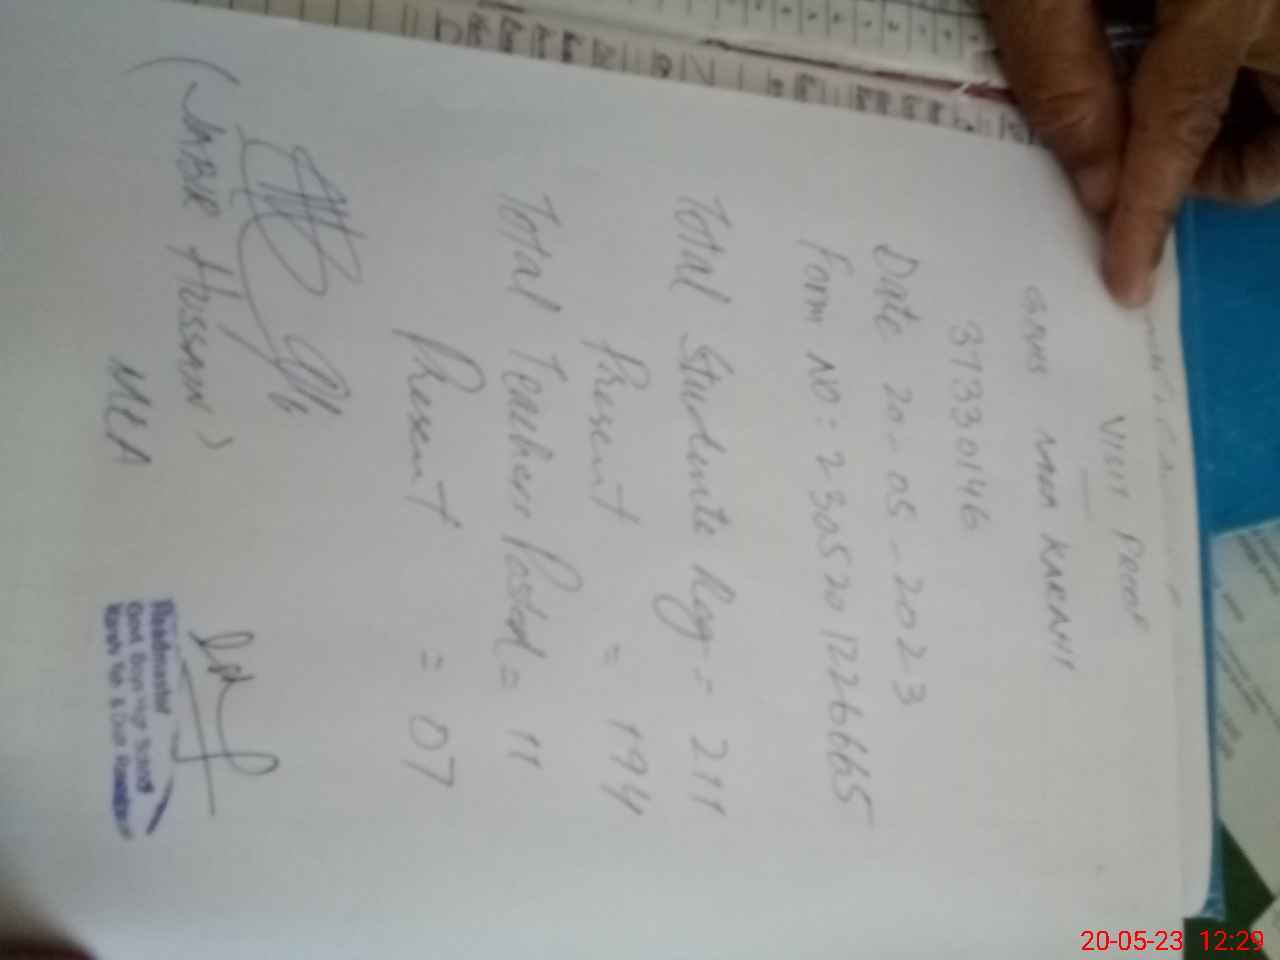 VISIT PROOF
GBHS NARA KARAHI
37330146
Date 20-05-2023
Form NO: 2305201226665
Total Students Reg = 211
Present = 194
Total Teachers Posted = 11
Present = 07
HUSSAIN)
MEA
Headmaster
Govt. Boys High School
20-05-23 12:29